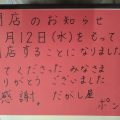 閉店のお知らせ
月12日(水)をもって
閉店することになりました
てくださった みなさま
りがとう ございました
感謝。 だがし屋
ポン